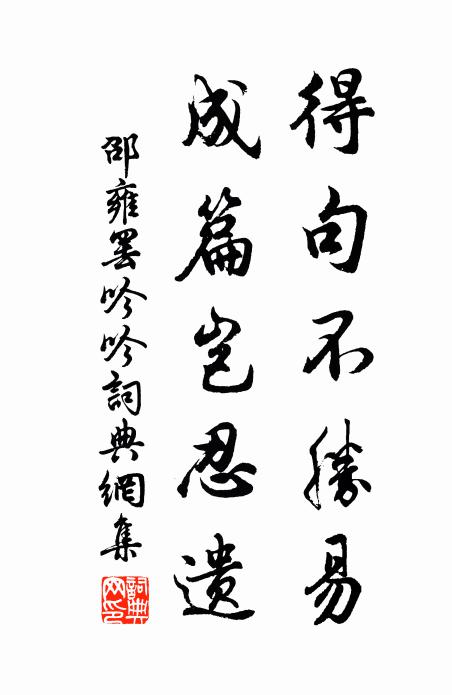 得句不勝易
成篇岂忍遗
邵雍罢吟吟詞典網集
詞典網印